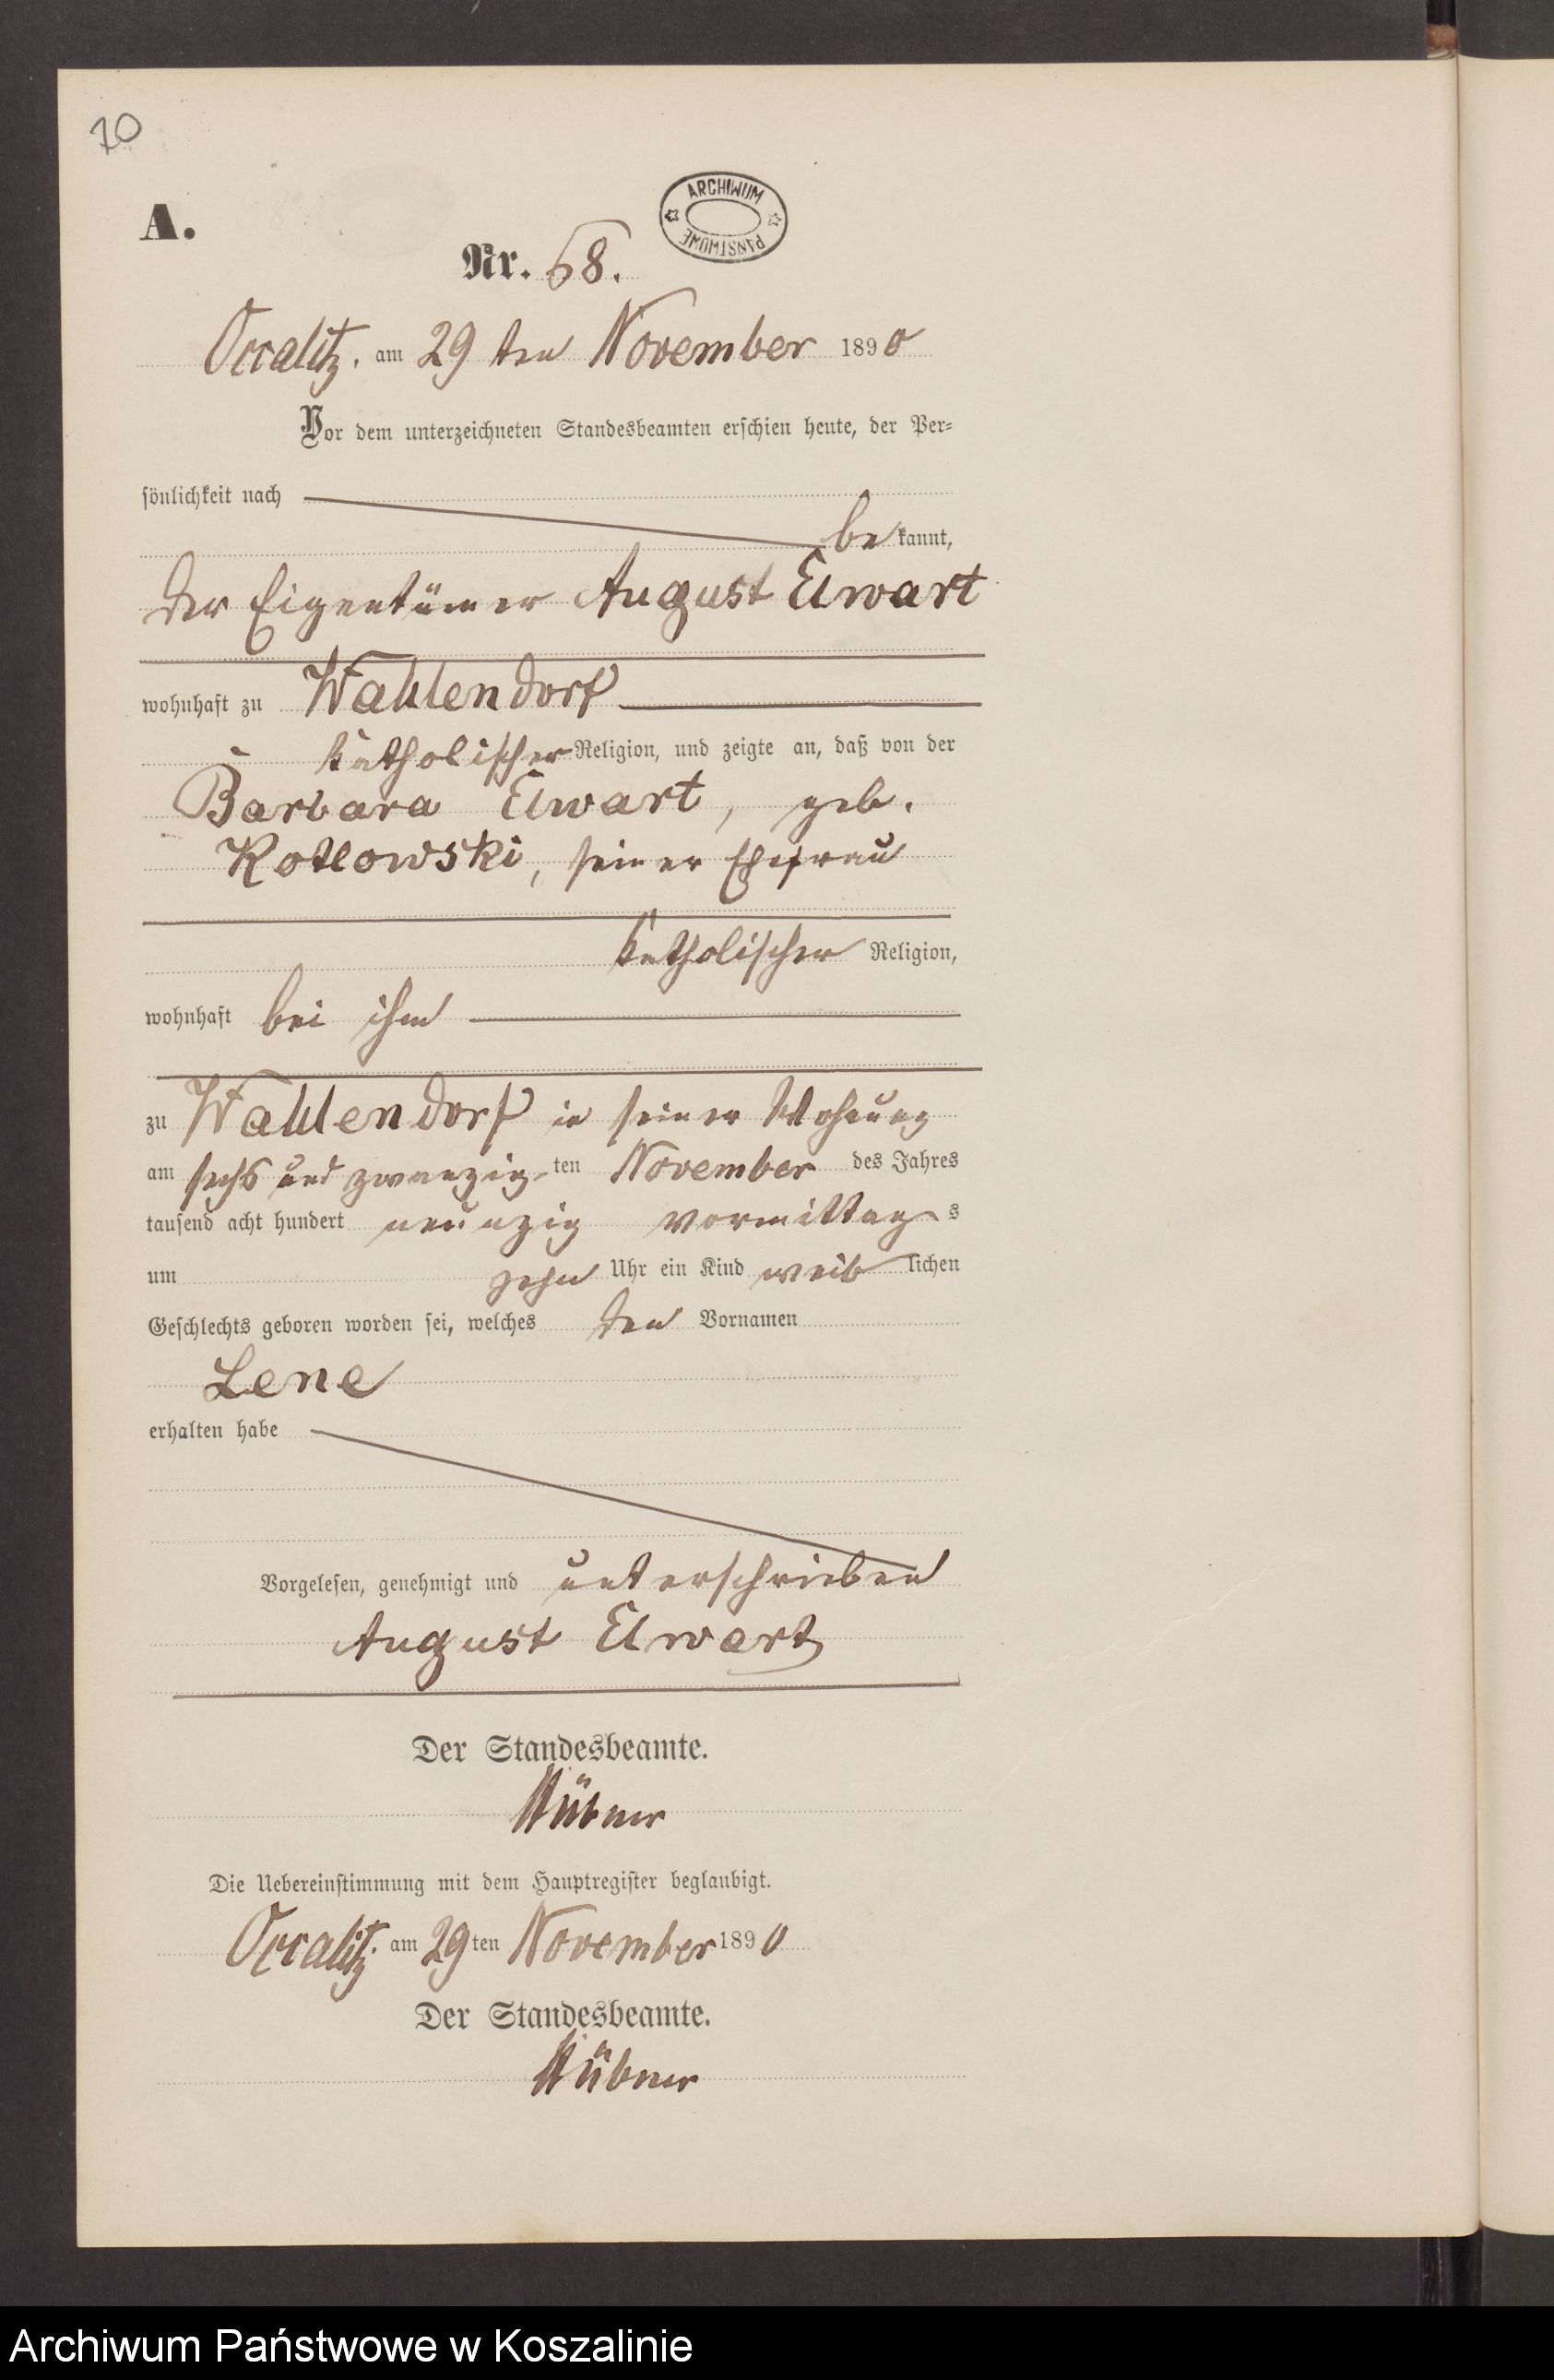 70
A.
ARCHIWUM PAŃSTWOWE
Nr. 68.
Occalitz. am 29 ten November 1890
Vor dem unterzeichneten Standesbeamten erschien heute, der Per-
sönlichkeit nach
be kannt,
der Eigentümer August Elwart
wohnhaft zu Wahlendorf
katholischer Religion, und zeigte an, daß von der
Barbara Elwart, geb.
Kotlowski, seiner Ehefrau
katholischer Religion,
wohnhaft bei ihm
zu Wahlendorf in seiner Wohnung
am sechs und zwanzig-ten November des Jahres
tausend acht hundert neunzig vormittag s
um zehn Uhr ein Kind weib lichen
Geschlechts geboren worden sei, welches den Vornamen
Lene
erhalten habe
Vorgelesen, genehmigt und unterschrieben
August Elwart
Der Standesbeamte.
Hübner
Die Uebereinstimmung mit dem Hauptregister beglaubigt.
Occalitz. am 29 ten November 1890
Der Standesbeamte.
Hübner
Archiwum Państwowe w Koszalinie